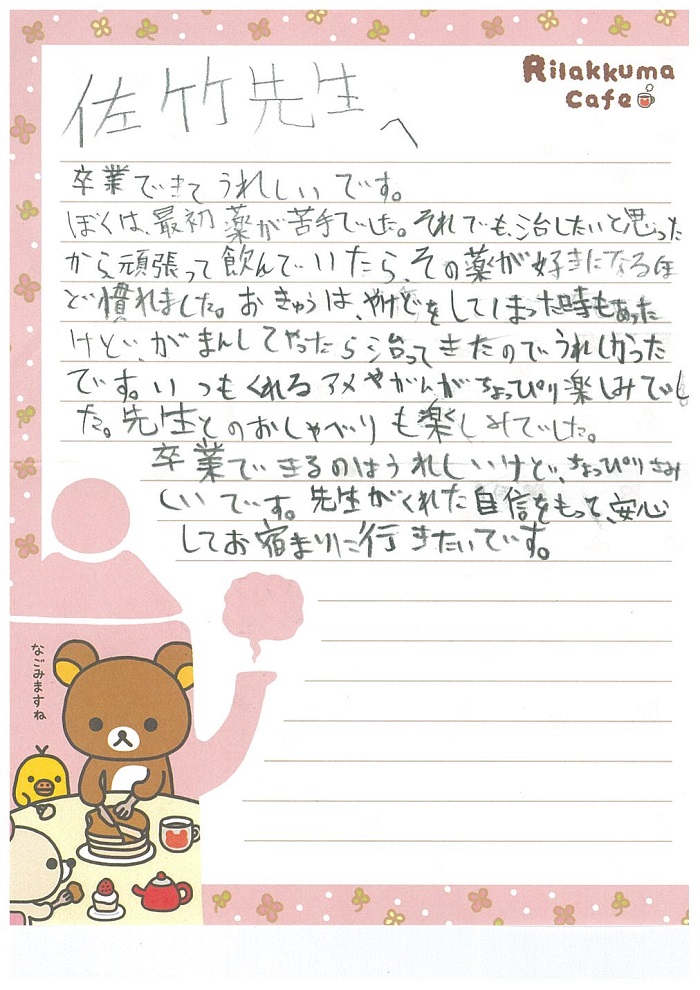 Rilakkuma
Cafe
佐竹先生へ
卒業できてうれしいです。
ぼくは、最初薬が苦手でした。それでも、治したいと思った
から頑張って飲んでいたら、その薬が好きになるほ
ど慣れました。おきゅうは、やけどをしてしまった時もあった
けど、がまんしてやったら治ってきたのでうれしかった
です。いつもくれるアメやガムがちょっぴり楽しみでし
た。先生とのおしゃべりも楽しみでした。
卒業できるのはうれしいけど、ちょっぴりさみ
しいです。先生がくれた自信をもって、安心
してお宿まりに行きたいです。
なごみますね